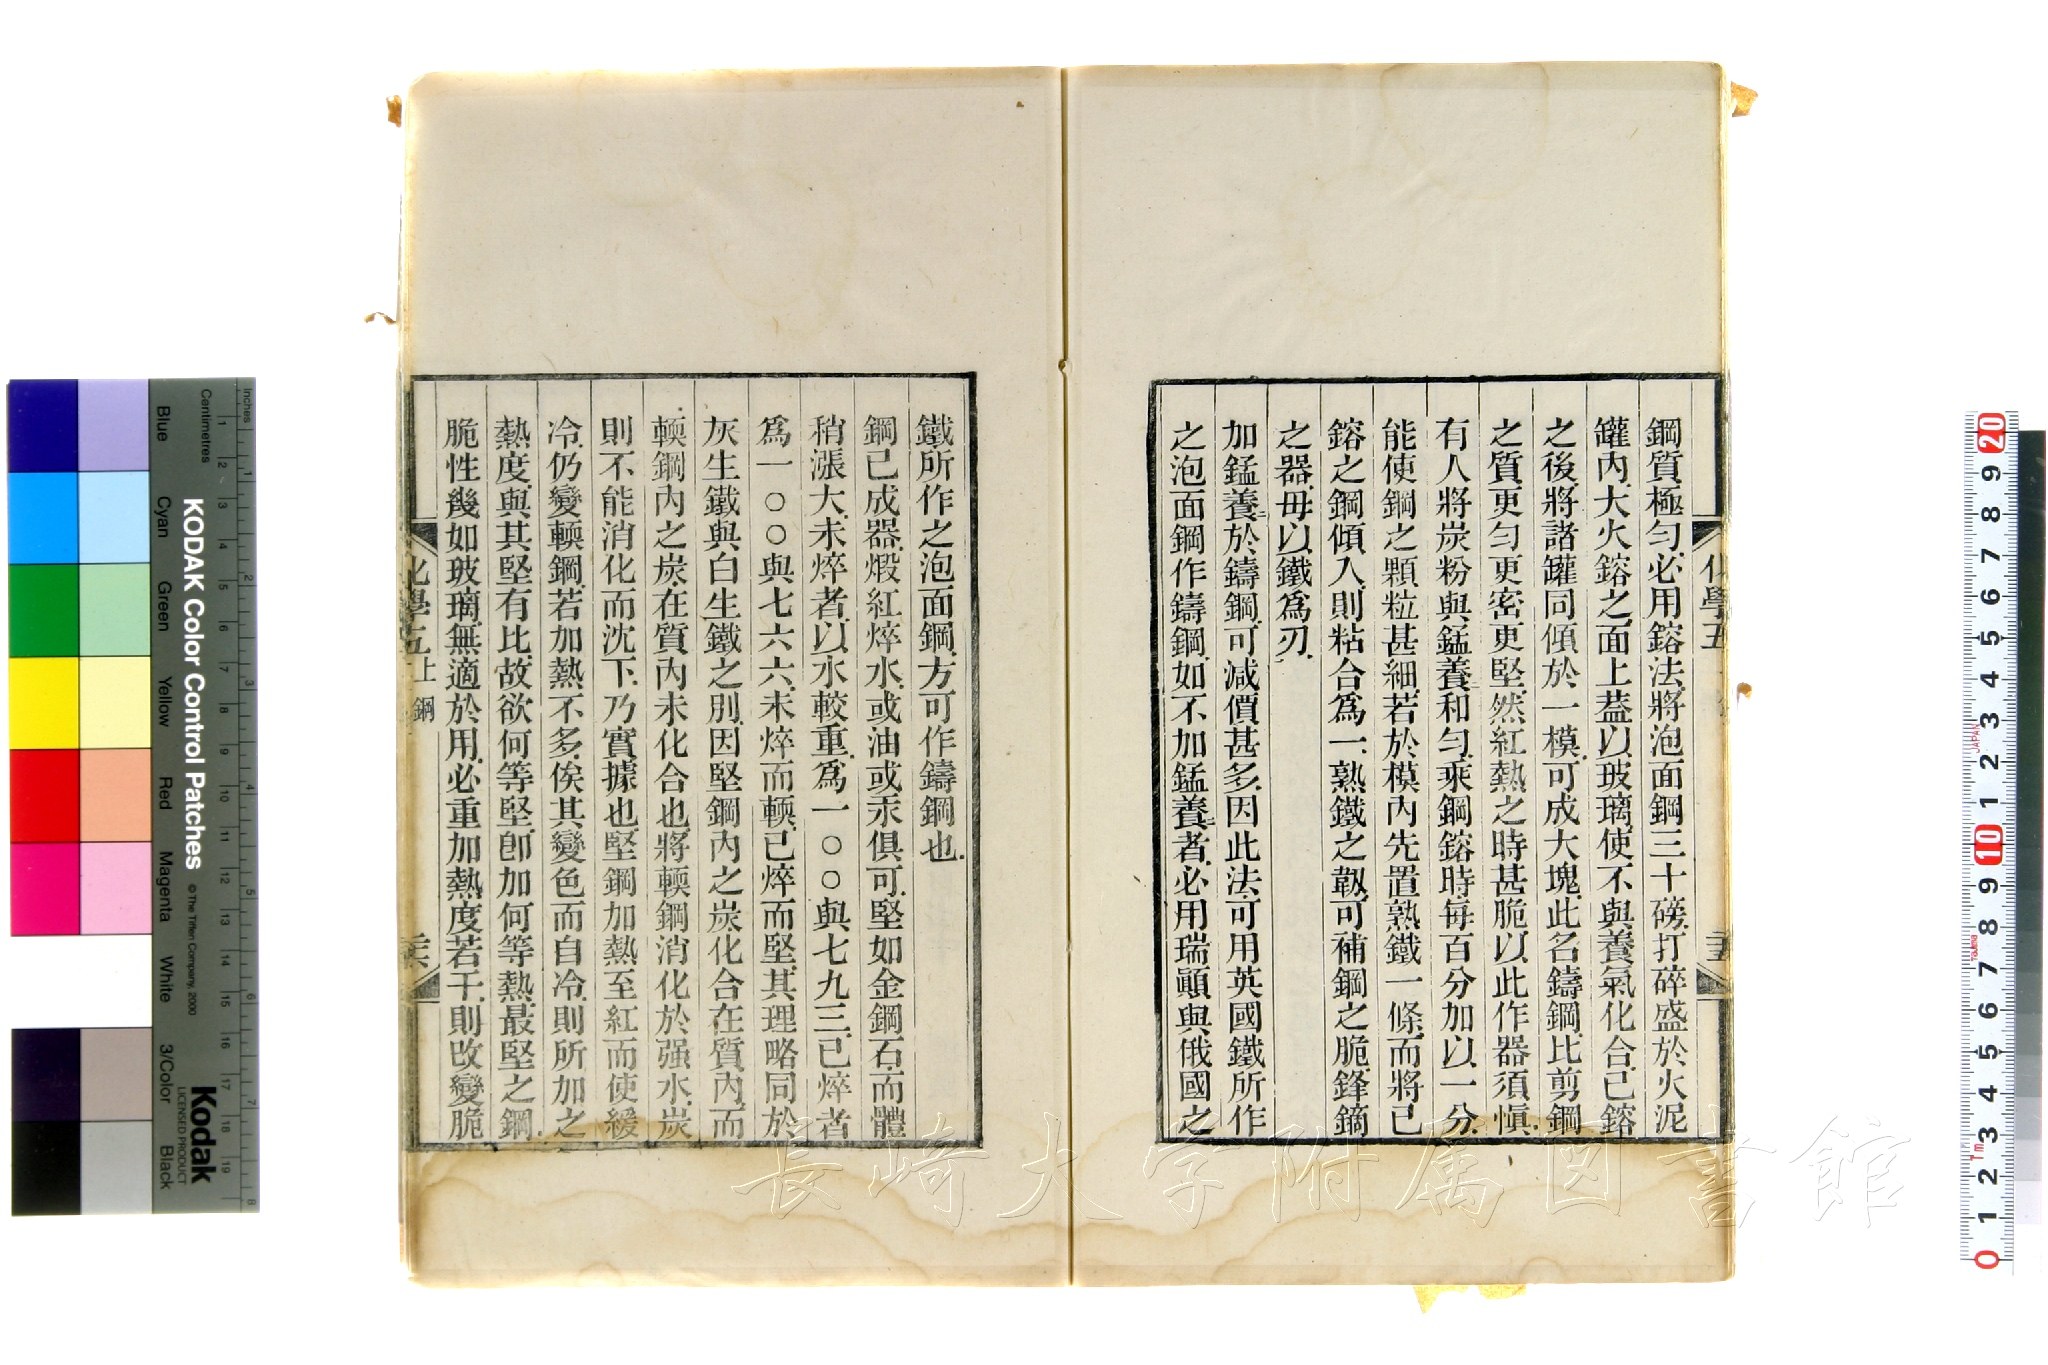 鋼質極勻必用鎔法將泡面鋼三十磅打碎盛於火泥
罐內大火鎔之面上葢以玻璃使不與養氣化合已鎔
之後將諸罐同傾於一模可成大塊此名鑄鋼比剪鋼
之質更勻更密更堅然紅熱之時甚脆以此作器須愼
有人將炭粉與錳養和勻乘鋼鎔時每百分加以一分
能使鋼之顆粒甚細若於模內先置熟鐵一條而將已
鎔之鋼傾入則粘合爲一熟鐵之韌可補鋼之脆鋒鏑
之器毋以鐵爲刃
加錳養於鑄鋼可減價甚多因此法可用英國鐵所作
之泡面鋼作鑄鋼如不加錳養者必用瑞顚與俄國之
化學五
二十五
鐵所作之泡面鋼方可作鑄鋼也
鋼已成器煅紅焠水或油或汞俱可堅如金鋼石而體
稍漲大未焠者以水較重爲一〇〇與七九三已焠者
爲一〇〇與七六六未焠而輭已焠而堅其理略同於
灰生鐵與白生鐵之別因堅鋼內之炭化合在質內而
輭鋼內之炭在質內未化合也將輭鋼消化於强水炭
則不能消化而沈下乃實據也堅鋼加熱至紅而使緩
冷仍變輭鋼若加熱不多俟其變色而自冷則所加之
熱度與其堅有比故欲何等堅卽加何等熱最堅之鋼
脆性幾如玻璃無適於用必重加熱度若干則改變脆
化學五 上 鋼
二十六
長崎大学附属図書館
KODAK Color Control Patches
© The Tiffen Company, 2000
Kodak
LICENSED PRODUCT
Inches
Centimetres
Blue
Cyan
Green
Yellow
Red
Magenta
White
3/Color
Black
JAPAN